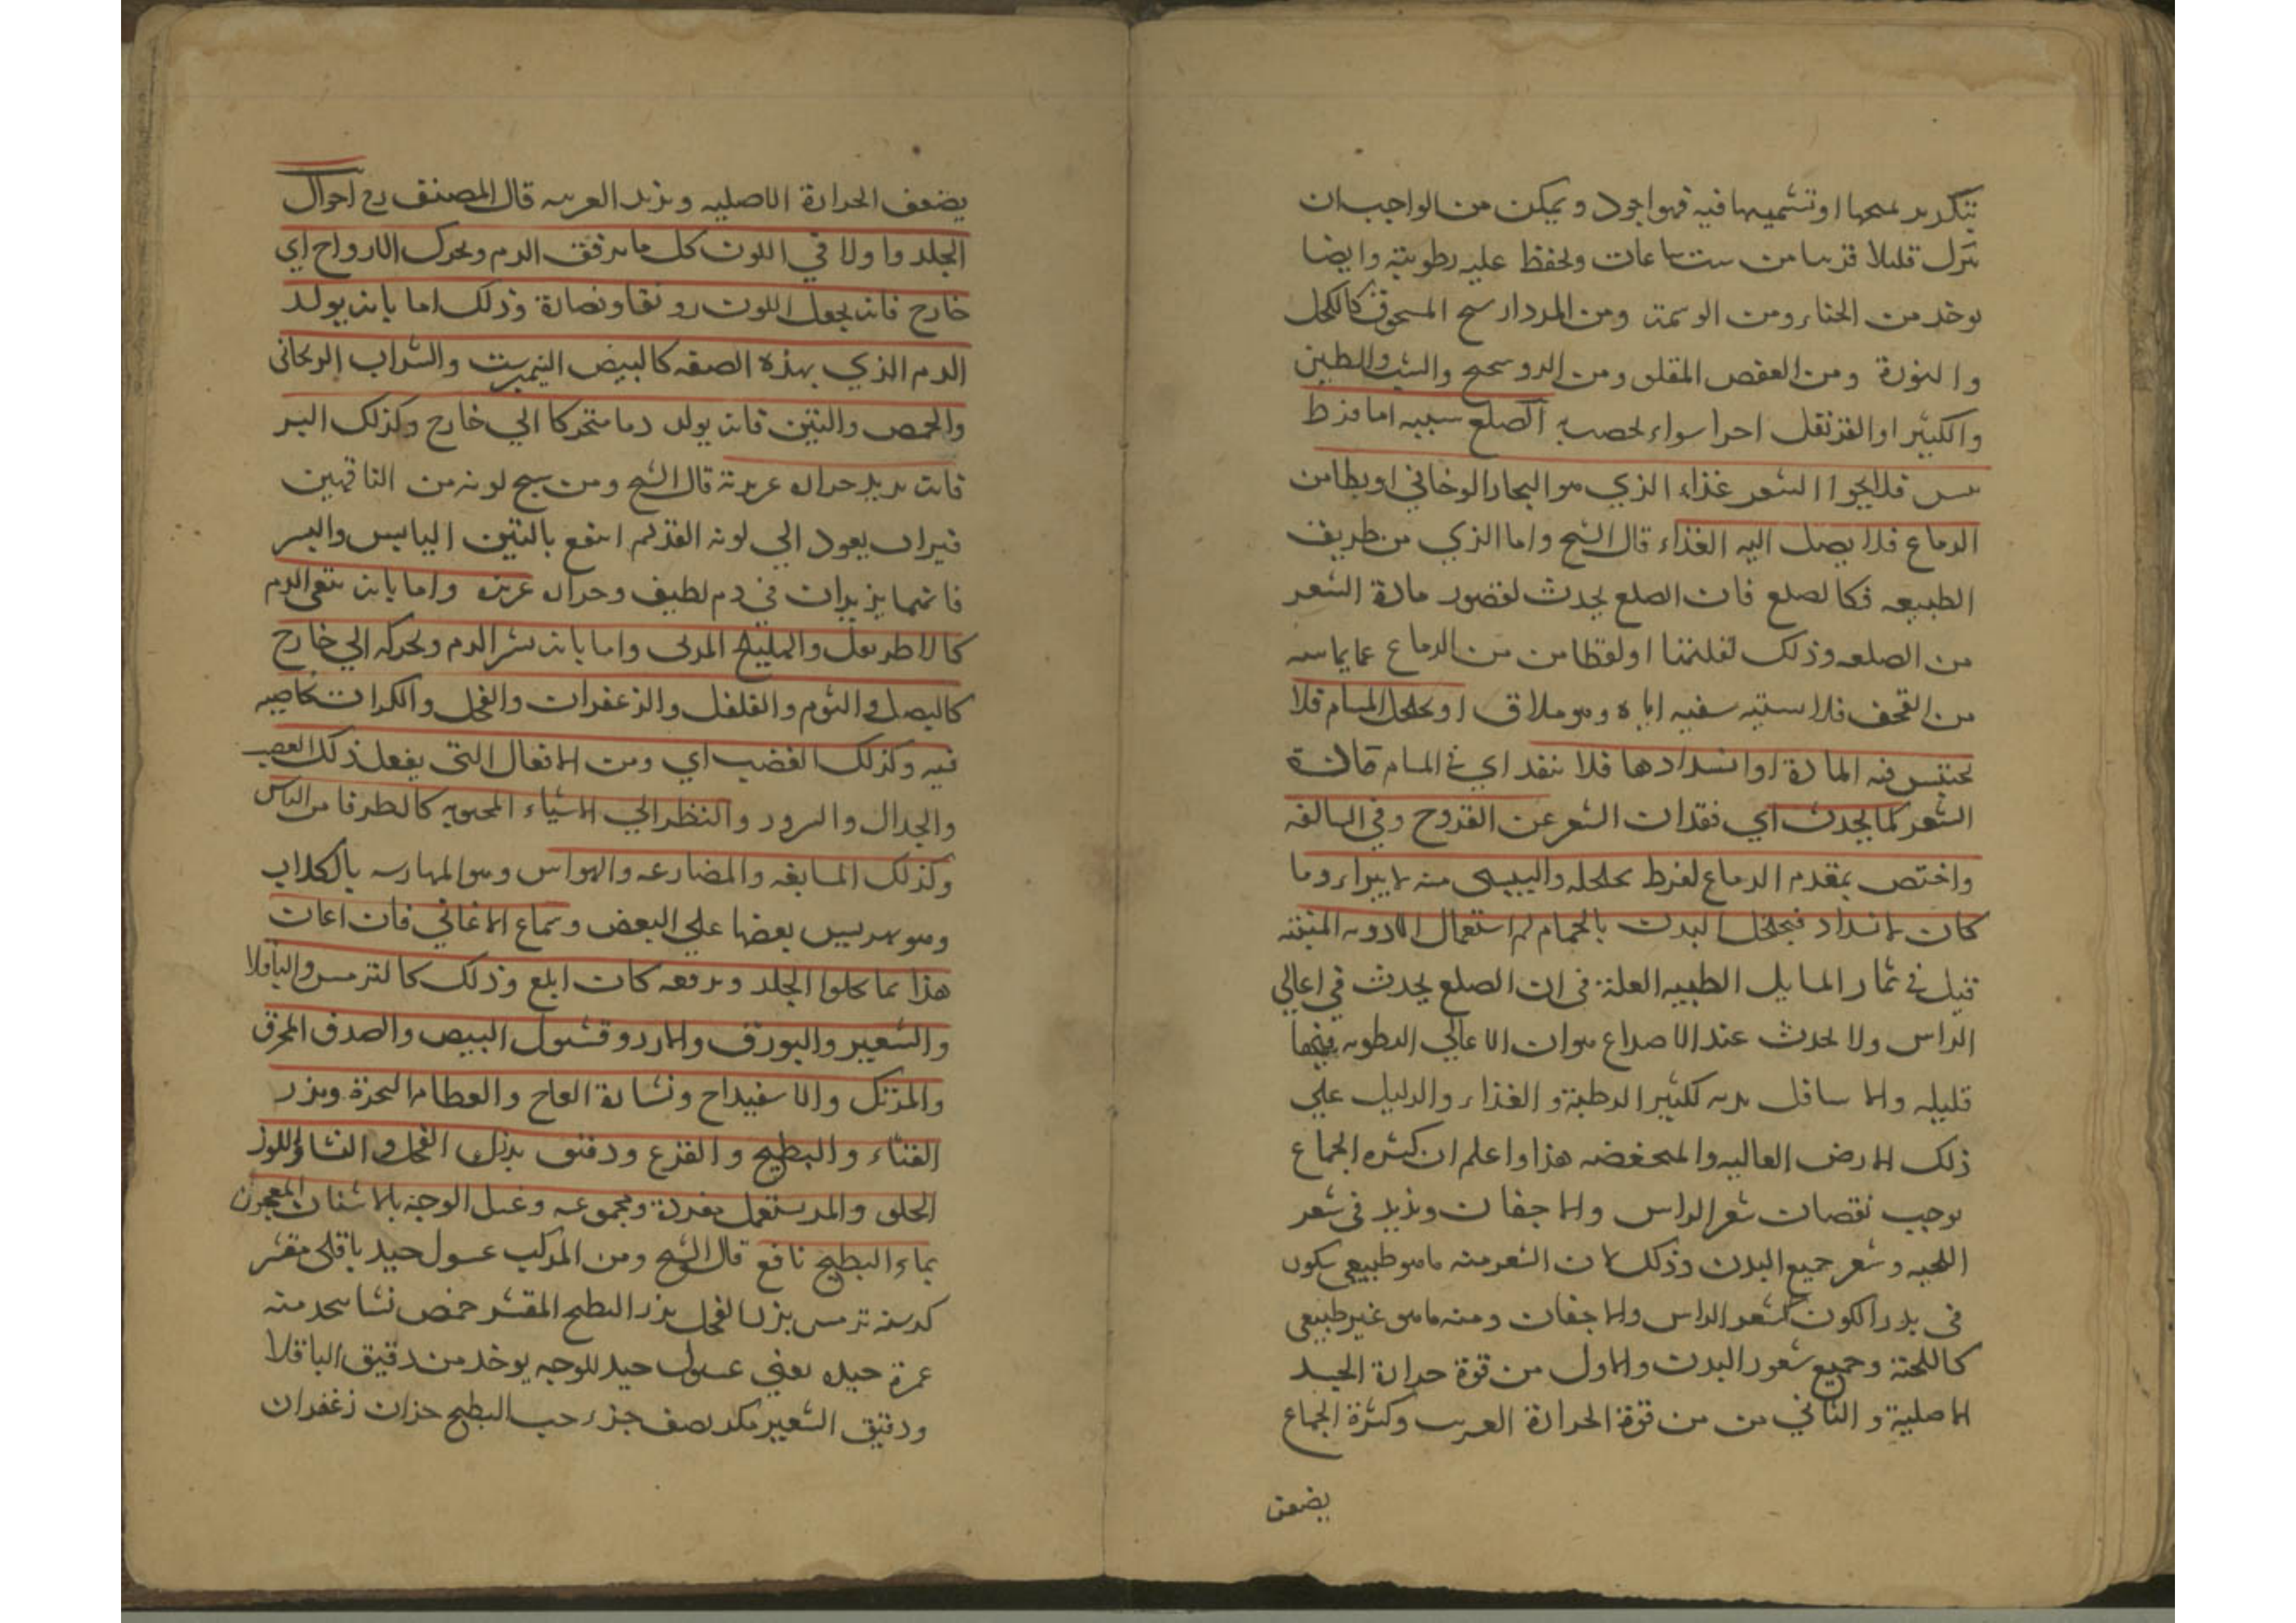 بتكرير لمحها او تشميمها فيه فهو اجود ويمكن من الواجب ان
يترك قليلا قريبا من ست ساعات ويحفظ عليه رطوبته وايضا
يوخذ من الحناء ومن الوسمة ومن المردارسنج المسحوق كالكحل
والنورة ومن العفص المقلي ومن الروسختج والشب والطين
والكثيرا والقرنفل اجزا سواء يخضب به الصلع سببه اما فرط
يبس فلا يجد الشعر غذاء الذي هو البخار الدخاني او تطامن
الدماغ فلا يصل اليه الغذاء قال الشيخ واما الذي من طريق
الطبيعه فكالصلع فان الصلع يحدث لقصور مادة الشعر
من الصلعه وذلك لقلتها او لتطامن من الدماغ عما يماسه
من القحف فلا يسقيه سقيه اياه وهو ملاق او تخلخل المسام فلا
تحتبس فيه المادة او انسدادها فلا ينفد اي في المسام مادة
الشعر كما يحدث اي فقدان الشعر عن القروح وفي السالفه
واختص بمقدم الدماغ لفرط تخلخله واليبسي منه لا يبراء وما
كان لانسداد فيخلخل البدن بالحمام ثم استعمال الادويه المنبته
قيل في ثمار المسايل الطبيه العلة في ان الصلع يحدث في اعالي
الراس ولا يحدث عند الاصداغ هو ان الاعالي الرطوبه فيها
قليله والاسافل بريه لكثير الرطبة والغذاء والدليل علي
ذلك الارض العاليه والمنخفضه هذا واعلم ان كثره الجماع
يوجب نقصان شعر الراس والاجفان ويزيد في شعر
اللحيه وشعر جميع البدن وذلك لان الشعر منه ما هو طبيعي يكون
في بدء الكون كشعر الراس والاجفان ومنه ما هو غير طبيعي
كاللحية وجميع شعور البدن والاول من قوة حرارة الجسد
الاصلية والثاني من من قوة الحرارة الغريبه وكثرة الجماع
يضعف
يضعف الحرارة الاصليه ويزيد الغريبه قال المصنف رح احوال
الجلد واولا في اللون كل ما يرقق الدم ويحرك الارواح اي
خارج فانه يجعل اللون رونقا ونضارة وذلك اما بان يولد
الدم الذي بهذه الصفه كالبيض النيمبرشت والشراب الريحاني
والحمص والتين فانه يولد دما متحركا الي خارج وكذلك البسر
فانه يزيد حراره غريزية قال الشيخ ومن سمج لونه من الناقهين
فيراد يعود الي لونه القديم انتفع بالتين اليابس والبسر
فانهما يزيدان في دم لطيف وحراره غريزه واما بان ينقي الدم
كالاطريفل والهليلج المربي واما بان ينشر الدم ويحركه الي خارج
كالبصل والثوم والفلفل والزعفران والفجل والكراث لخاصيه
فيه وكذلك الغضب اي ومن الافعال التي يفعل ذلك الغضب
والجدال والسرور والنظر الي الاشياء المحبوبه كالطرفا من الناس
وكذلك المسابقه والمصارعه والهراس وهو المهارسه بالكلاب
وهو تهريس بعضها علي البعض وسماع الاغاني فان اعان
هذا بما يجلوا الجلد ويرفعه كان ابلغ وذلك كالترمس والباقلا
والشعير والبورق والارز وقشور البيض والصدف المحرق
والمرتك والاسفيداج ونشارة العاج والعظام النخرة وبزر
القثاء والبطيخ والقرع ودقيق بزر الفجل والنشا واللوز
الحلو والمر يستعمل مفردة ومجموعه وغسل الوجه بالاشنان المعجون
بماء البطيخ نافع قال الشيخ ومن المركب غسول جيد باقلي مقشر
كرسنه ترمس بزر الفجل بزر البطيخ المقشر حمص نشا يتخذ منه
غمرة جيده يعني غسول جيد للوجه يوخذ من دقيق الباقلا
ودقيق الشعير مكد نصف جزء حب البطيخ جزان زعفران